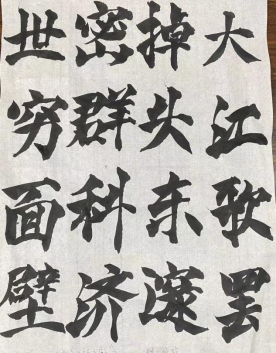 大江歌罢
掉头东邃
密群科济
世穷面壁